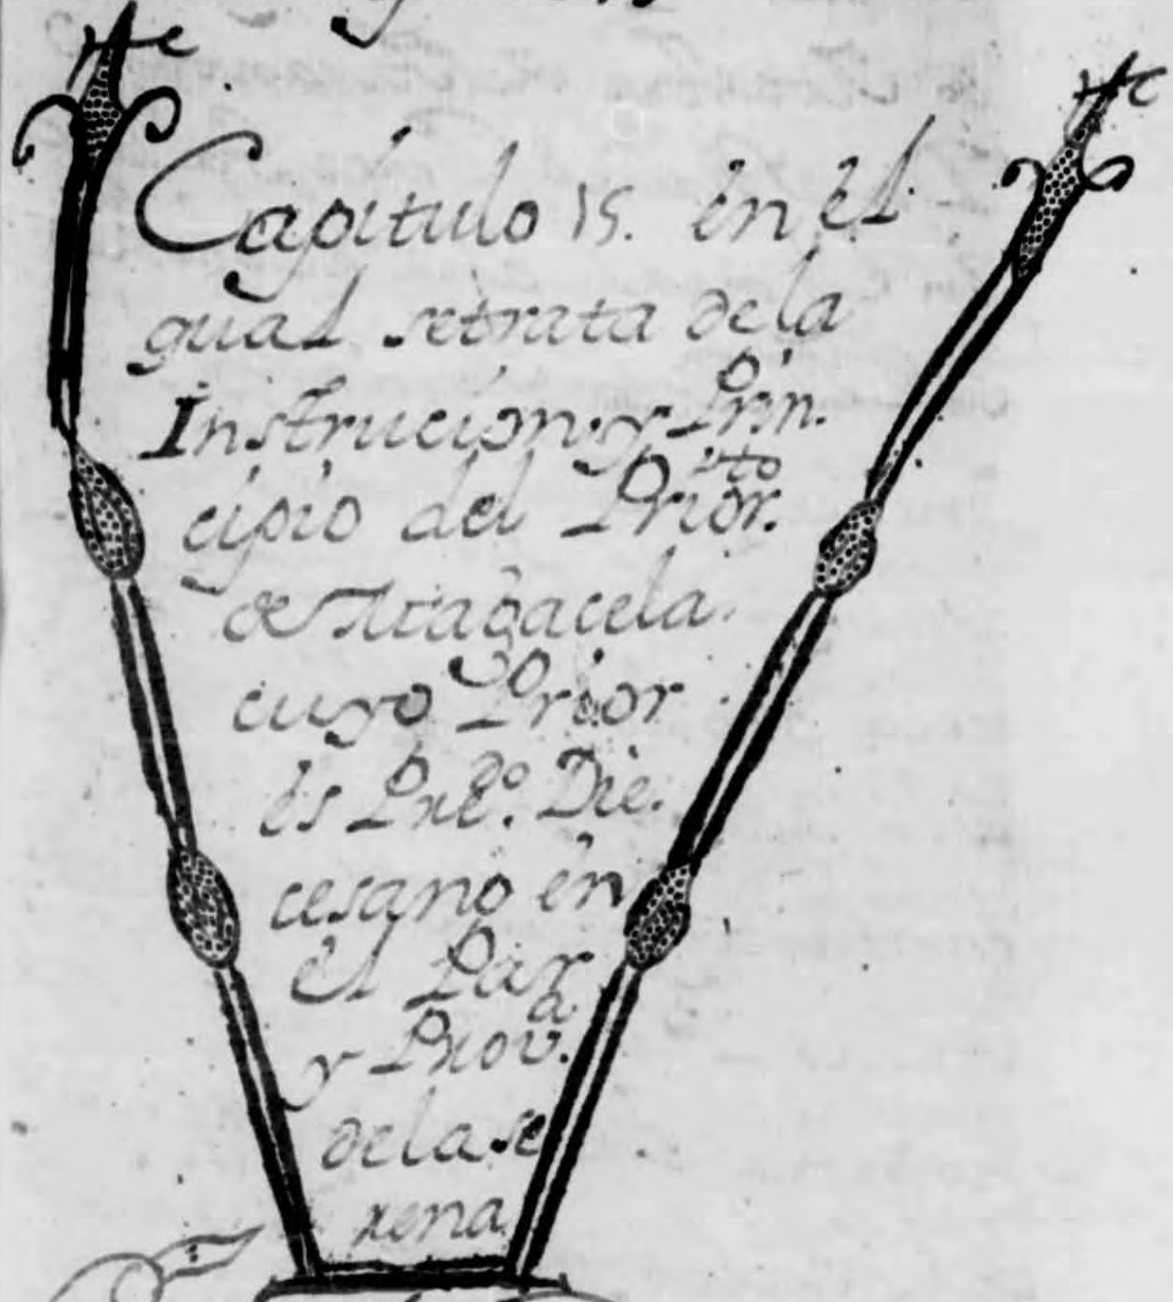 Capitulo 15. en el
qual setrata dela
Instrucion. y Prin.
cipio del Prior.to
de Magacela.
cuyo Prior
es Prëdo. Die.
cesano en
el Par
y Prov.a
dela se
rena